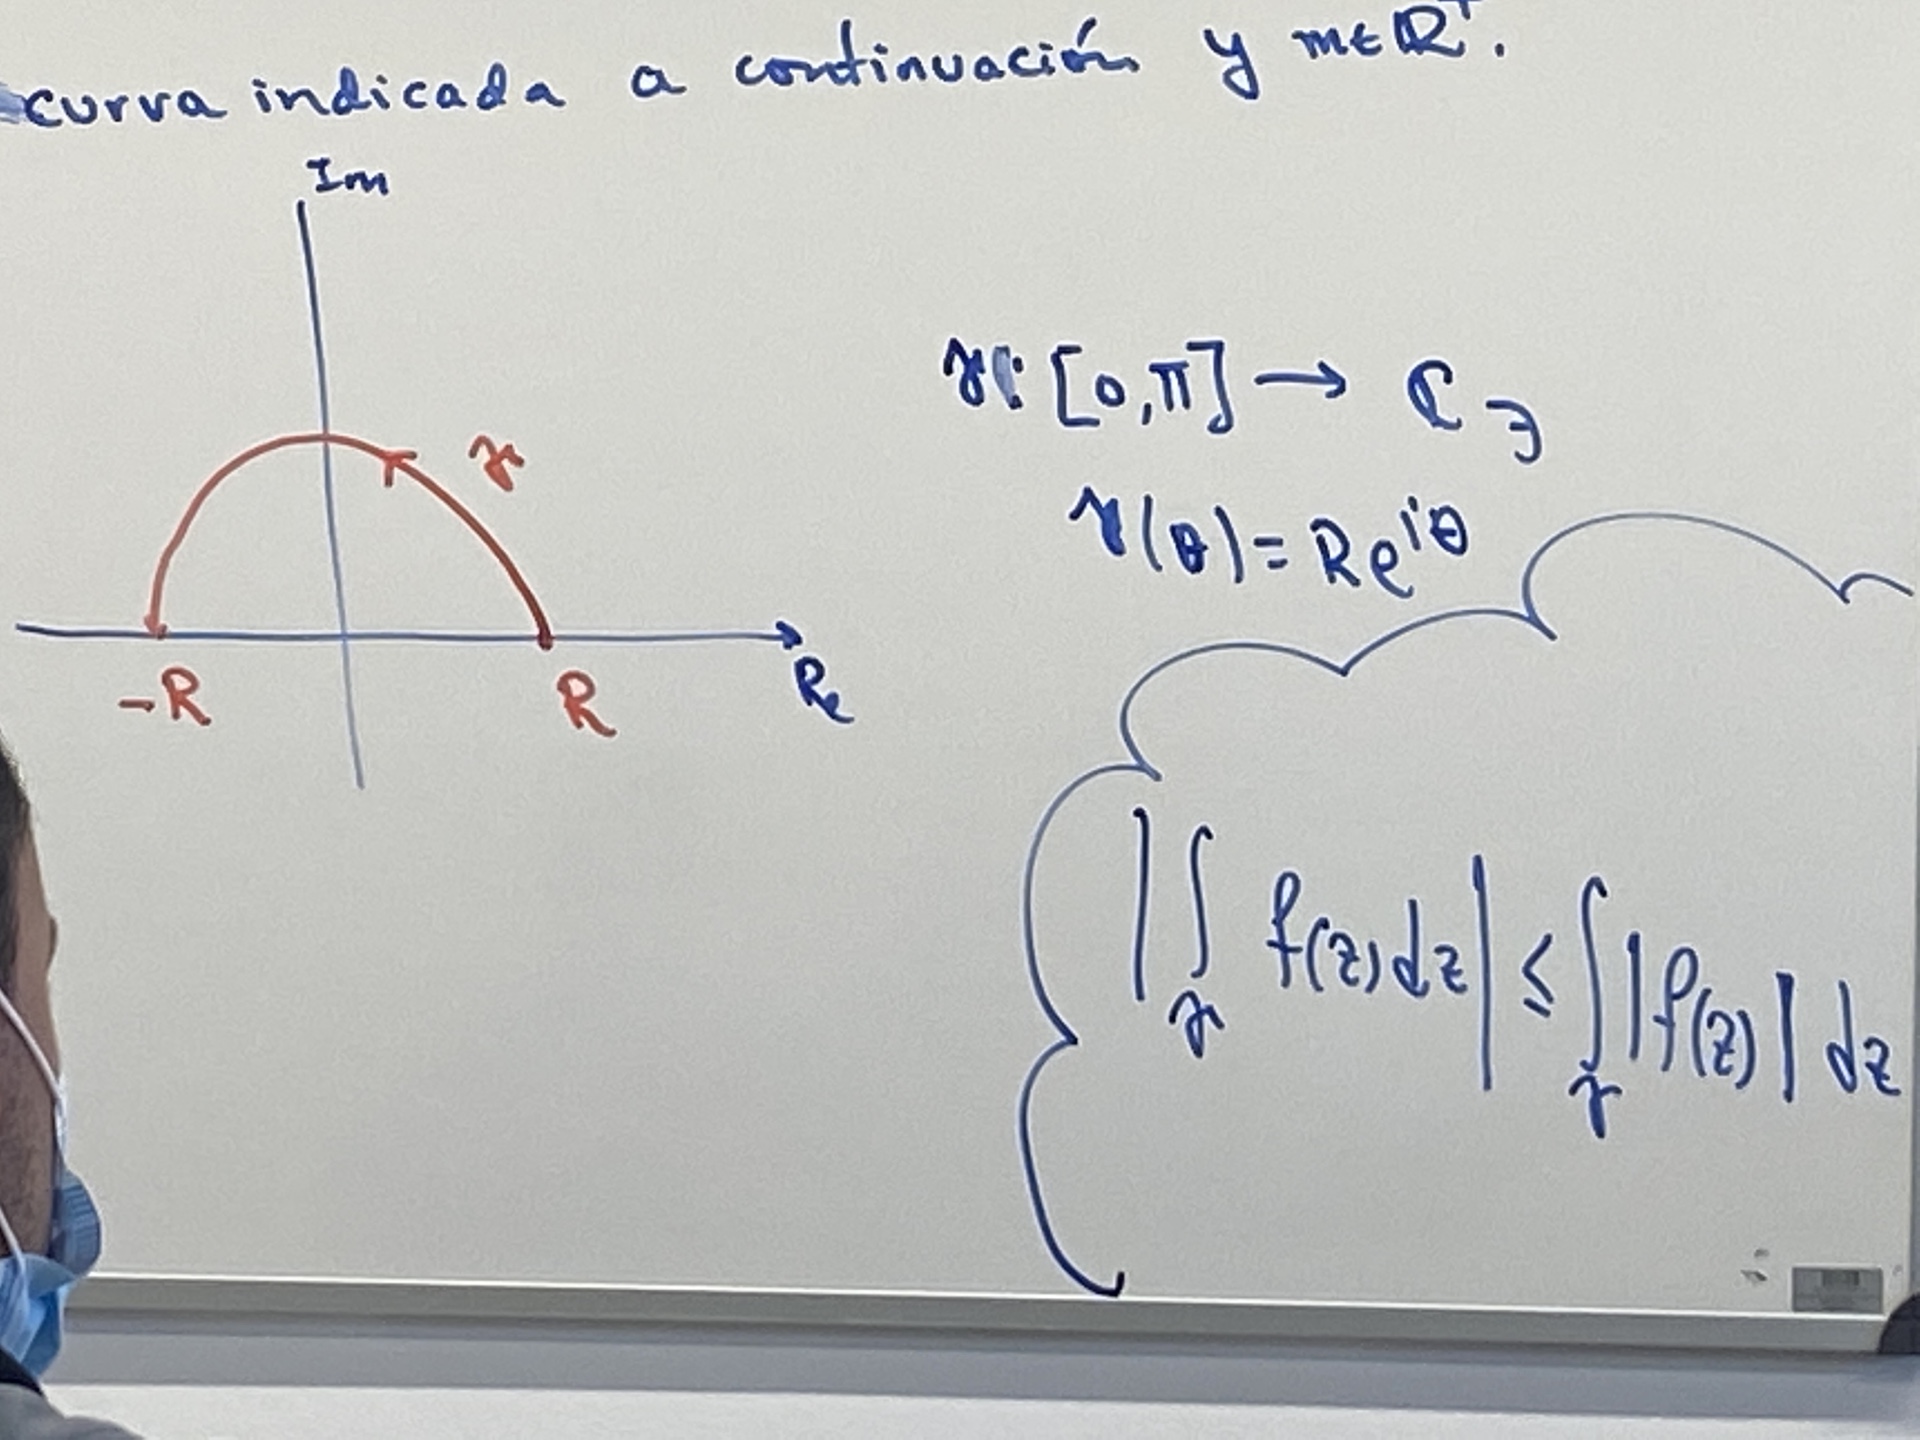 curva indicada a continuación y m∈ℝ⁺.
Im
γ
-R
R
Re
γ: [0,π] → ℂ ∋
γ(θ) = Re^{iθ}
|∫_γ f(z) dz| ≤ ∫_γ |f(z)| dz